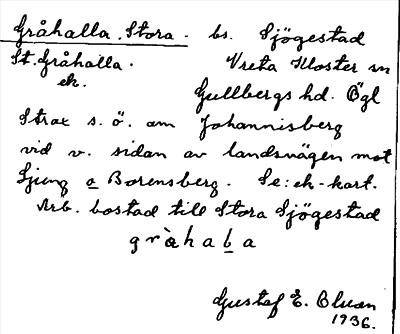 Gråhalla, Stora. bs. Sjögestad
St. Gråhalla. Vreta Kloster sn
ek. Gullbergs hd. Ögl
Strax s. ö. om Johannisberg
vid v. sidan av landsvägen mot
Ljung o Borensberg. Se: ek-kart.
Arb. bostad till Stora Sjögestad
gràhaba
Gustaf E.
1936.